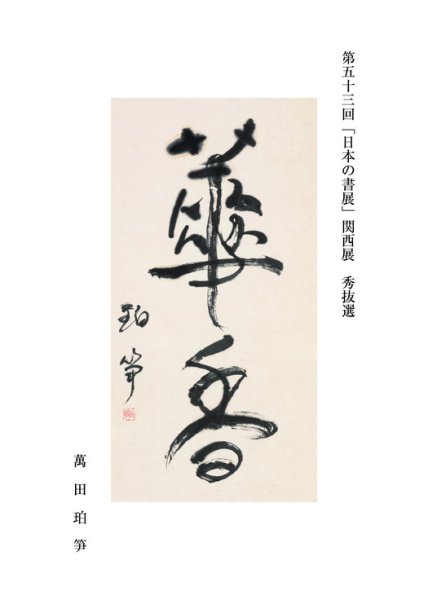 第五十三回「日本の書展」関西展　秀抜選
華香
珀笋
萬田珀笋